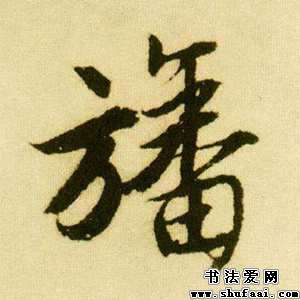 旛
书法爱网
www.shufaai.com